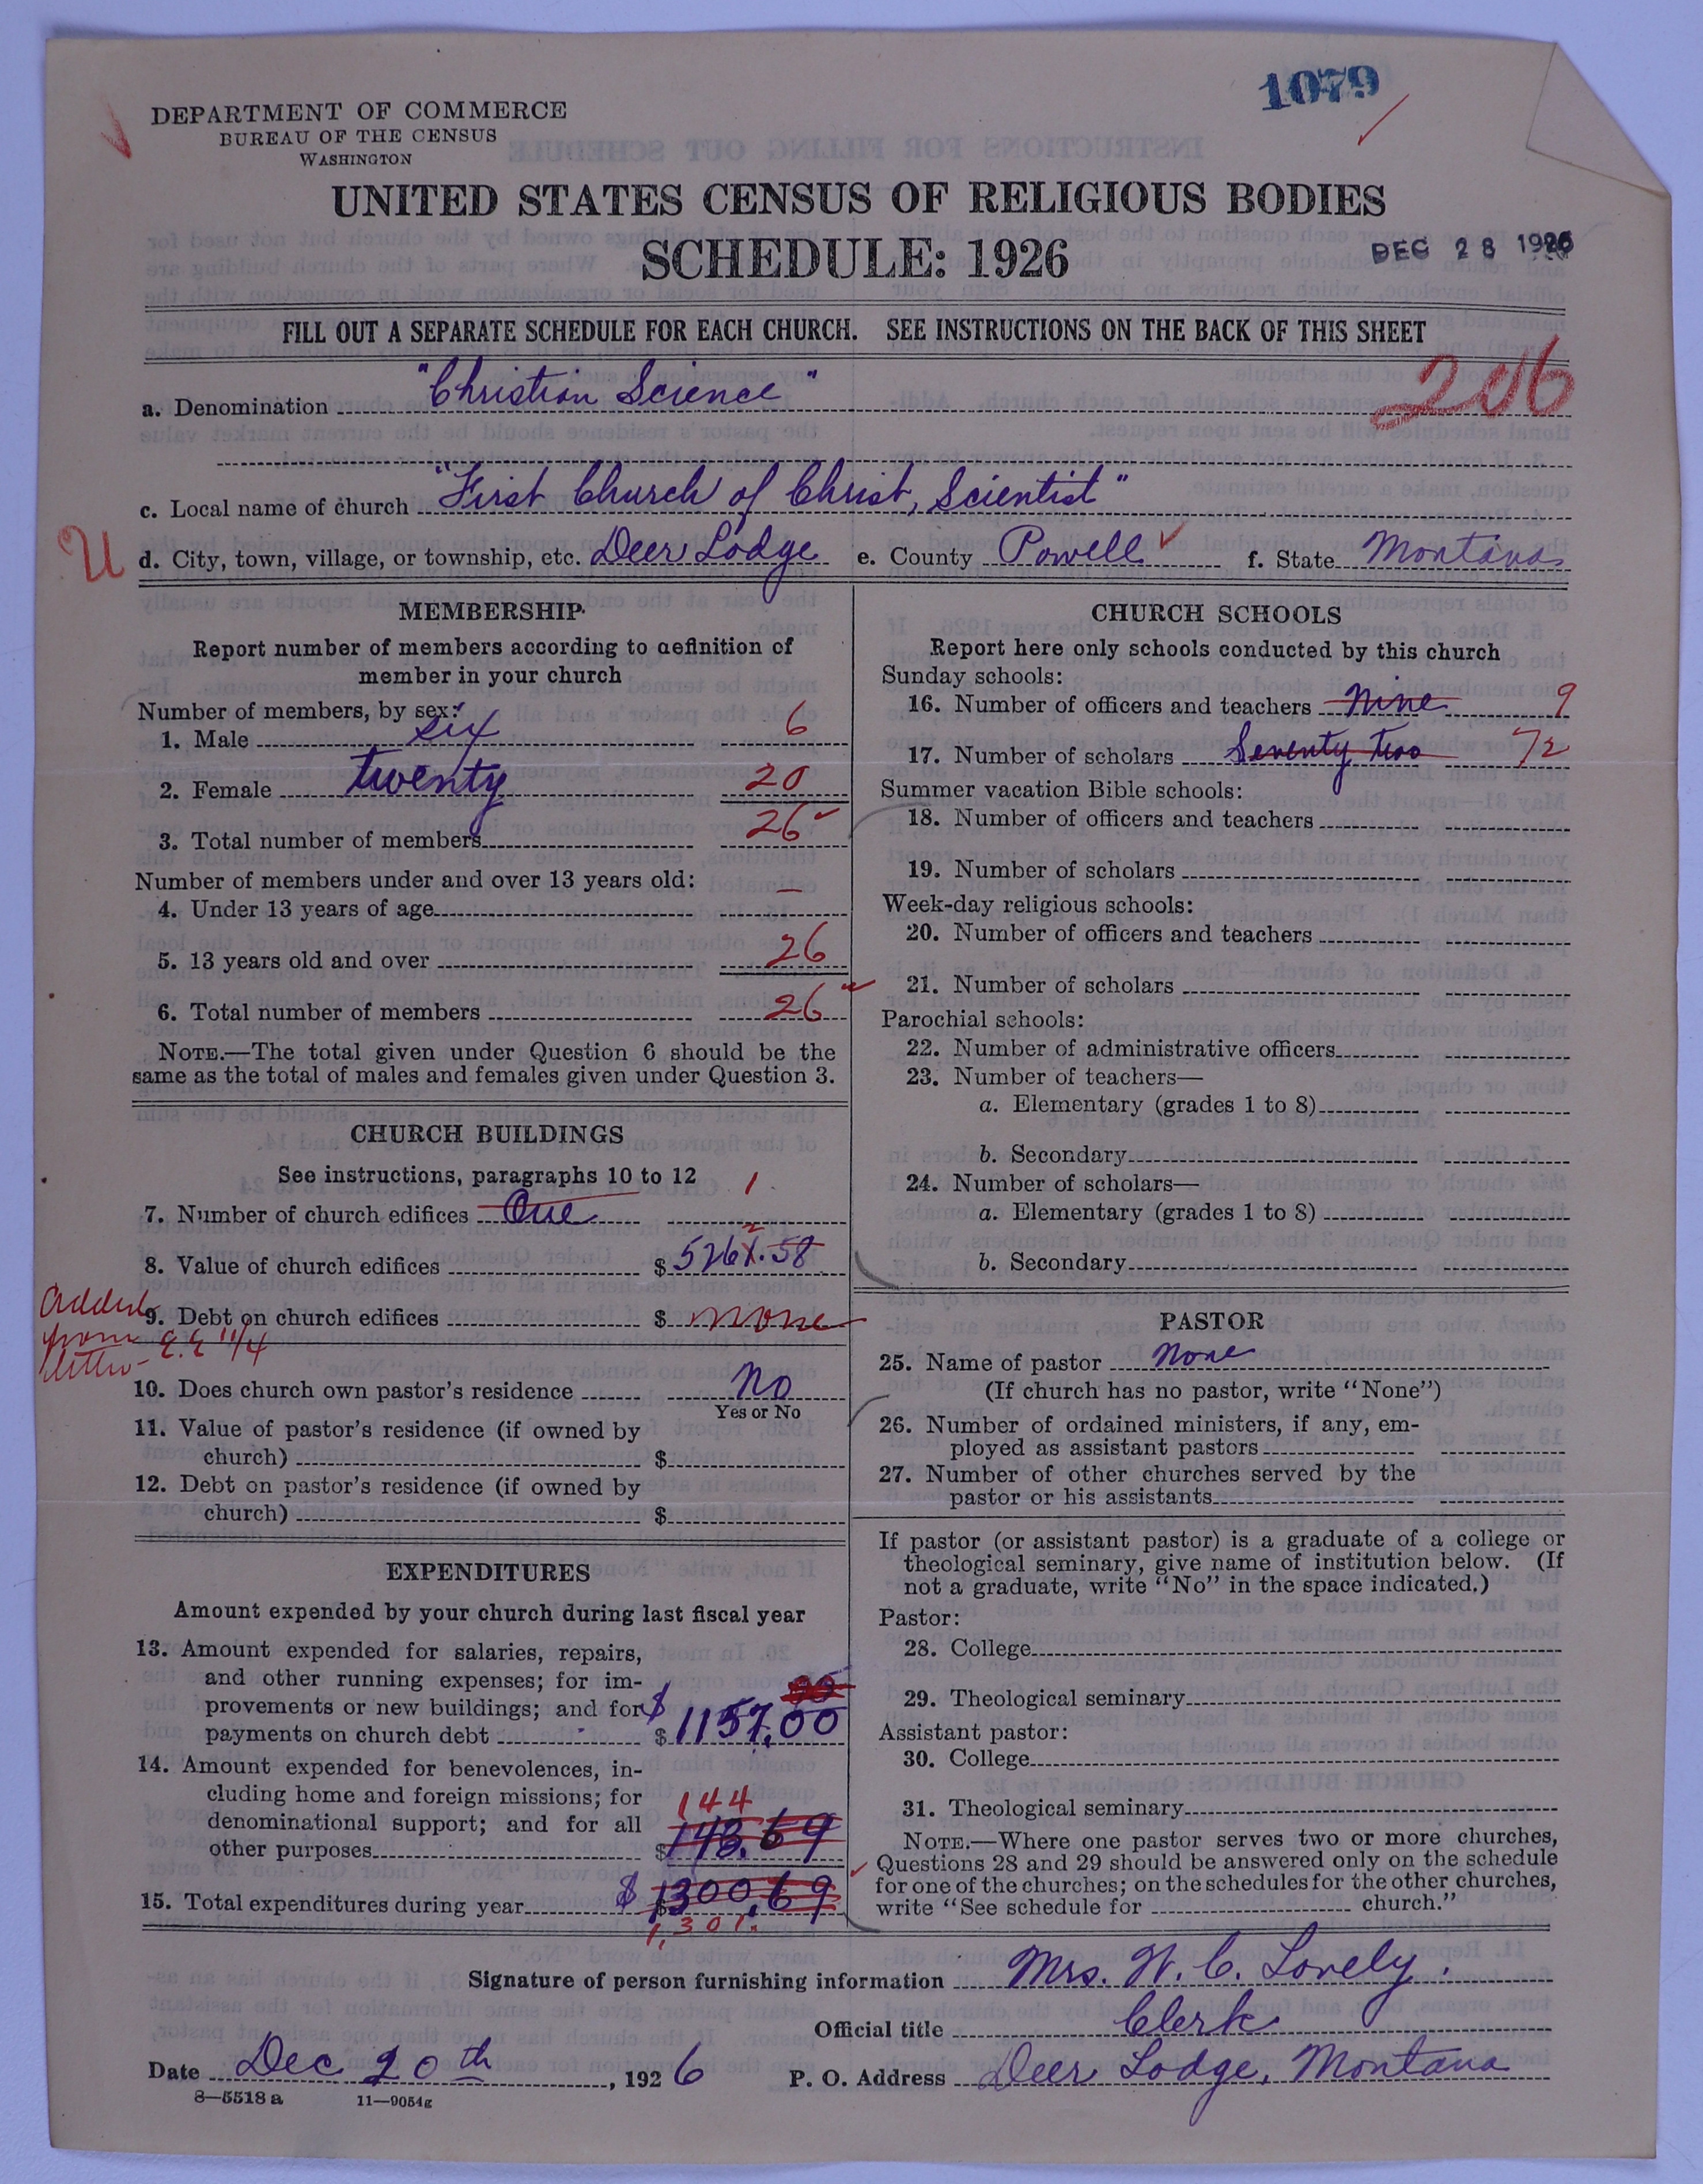 1079
DEPARTMENT OF COMMERCE
BUREAU OF THE CENSUS
WASHINGTON
UNITED STATES CENSUS OF RELIGIOUS BODIES
SCHEDULE: 1926
DEC 28 1926
FILL OUT A SEPARATE SCHEDULE FOR EACH CHURCH. SEE INSTRUCTIONS ON THE BACK OF THIS SHEET
206
a. Denomination "Christian Science"
c. Local name of church "First Church of Christ, Scientist"
U d. City, town, village, or township, etc. Deer Lodge e. County Powell f. State Montana
MEMBERSHIP
Report number of members according to definition of
member in your church
Number of members, by sex:
1. Male six 6
2. Female twenty 20
3. Total number of members 26
Number of members under and over 13 years old:
4. Under 13 years of age –
5. 13 years old and over 26
6. Total number of members 26
NOTE.—The total given under Question 6 should be the
same as the total of males and females given under Question 3.
CHURCH BUILDINGS
See instructions, paragraphs 10 to 12
7. Number of church edifices One 1
8. Value of church edifices $ 5261.58
2
9. Debt on church edifices $ none
added
from
letter- E.E 11/4
10. Does church own pastor's residence No
Yes or No
11. Value of pastor's residence (if owned by
church) $
12. Debt on pastor's residence (if owned by
church) $
EXPENDITURES
Amount expended by your church during last fiscal year
13. Amount expended for salaries, repairs,
and other running expenses; for im-
provements or new buildings; and for
payments on church debt $ $1157.00
14. Amount expended for benevolences, in-
cluding home and foreign missions; for
denominational support; and for all
other purposes $ 143.69
144
15. Total expenditures during year $ $1300.69
1,301.
CHURCH SCHOOLS
Report here only schools conducted by this church
Sunday schools:
16. Number of officers and teachers Nine 9
17. Number of scholars Seventy two 72
Summer vacation Bible schools:
18. Number of officers and teachers
19. Number of scholars
Week-day religious schools:
20. Number of officers and teachers
21. Number of scholars
Parochial schools:
22. Number of administrative officers
23. Number of teachers—
a. Elementary (grades 1 to 8)
b. Secondary
24. Number of scholars—
a. Elementary (grades 1 to 8)
b. Secondary
PASTOR
25. Name of pastor None
(If church has no pastor, write "None")
26. Number of ordained ministers, if any, em-
ployed as assistant pastors
27. Number of other churches served by the
pastor or his assistants
If pastor (or assistant pastor) is a graduate of a college or
theological seminary, give name of institution below. (If
not a graduate, write "No" in the space indicated.)
Pastor:
28. College
29. Theological seminary
Assistant pastor:
30. College
31. Theological seminary
NOTE.—Where one pastor serves two or more churches,
Questions 28 and 29 should be answered only on the schedule
for one of the churches; on the schedules for the other churches,
write "See schedule for church."
Signature of person furnishing information Mrs. W. C. Lovely.
Official title Clerk
Date Dec 20th, 1926 P. O. Address Deer Lodge, Montana
8—5518 a 11—9054g